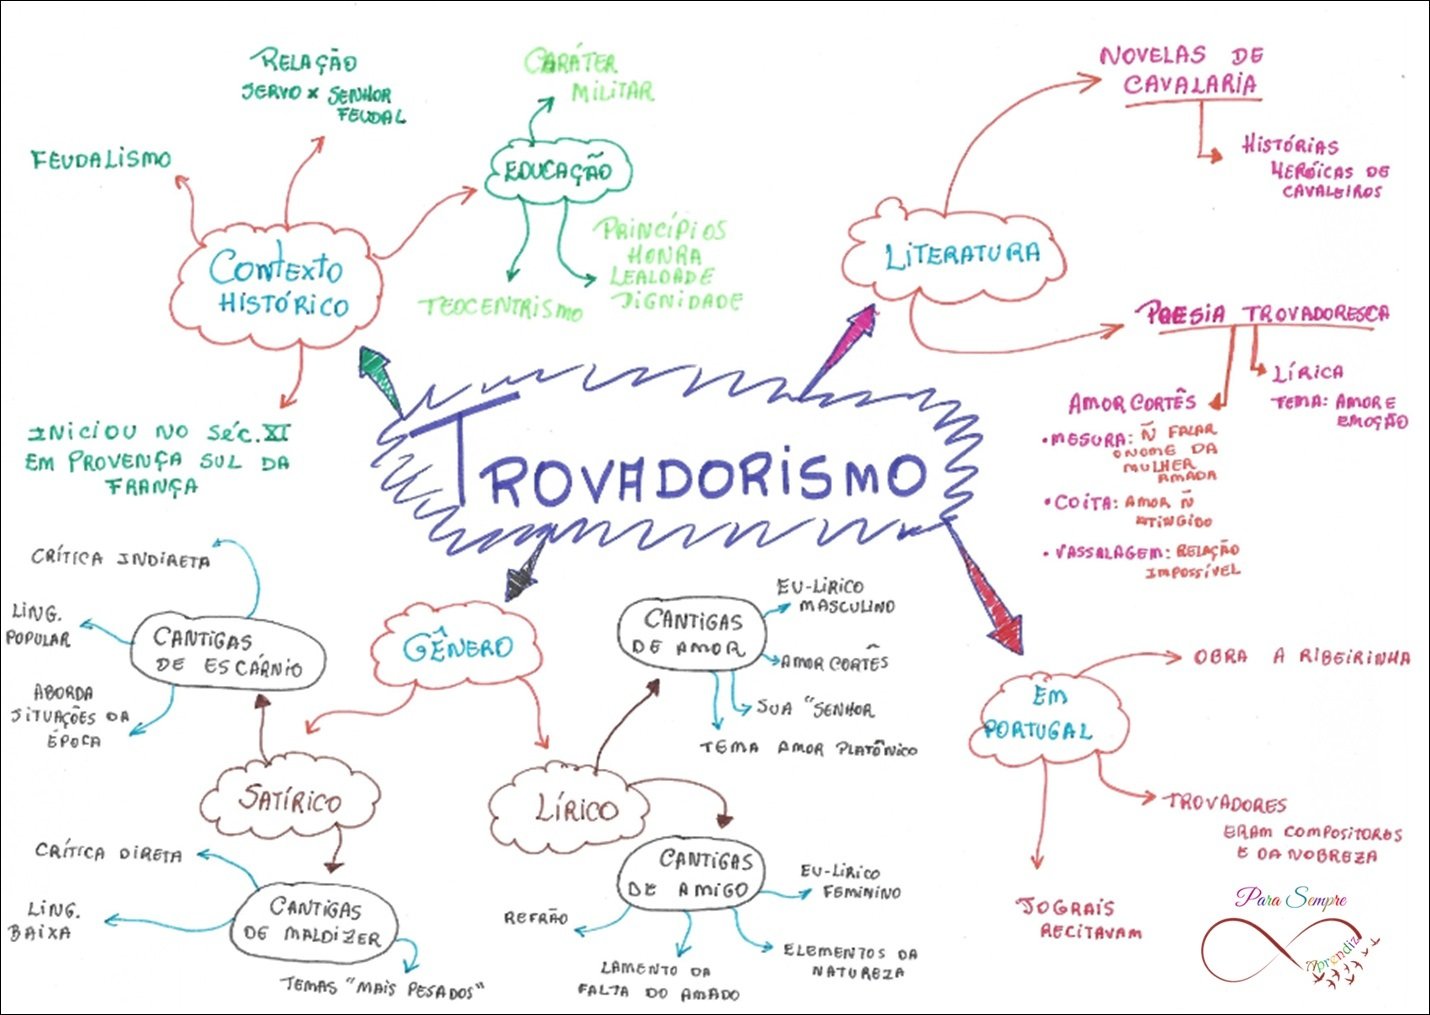 RELAÇÃO
SERVO x SENHOR
FEUDAL
FEUDALISMO
CONTEXTO
HISTÓRICO
INICIOU NO SÉC. XI
EM PROVENÇA SUL DA
FRANÇA
CARÁTER
MILITAR
EDUCAÇÃO
TEOCENTRISMO
PRINCÍPIOS
HONRA
LEALDADE
DIGNIDADE
NOVELAS DE
CAVALARIA
HISTÓRIAS
HERÓICAS DE
CAVALEIROS
LITERATURA
POESIA TROVADORESCA
LÍRICA
TEMA: AMOR E
EMOÇÃO
AMOR CORTÊS
• MESURA: Ñ FALAR
O NOME DA
MULHER
AMADA
• COITA: AMOR Ñ
ATINGIDO
• VASSALAGEM: RELAÇÃO
IMPOSSÍVEL
TROVADORISMO
CRÍTICA INDIRETA
LING.
POPULAR
CANTIGAS
DE ESCÁRNIO
ABORDA
SITUAÇÕES DA
ÉPOCA
GÊNERO
SATÍRICO
CRÍTICA DIRETA
LING.
BAIXA
CANTIGAS
DE MALDIZER
TEMAS "MAIS PESADOS"
LÍRICO
CANTIGAS
DE AMOR
EU-LÍRICO
MASCULINO
AMOR CORTÊS
SUA "SENHOR
TEMA AMOR PLATÔNICO
CANTIGAS
DE AMIGO
EU-LÍRICO
FEMININO
REFRÃO
LAMENTO DA
FALTA DO AMADO
ELEMENTOS DA
NATUREZA
EM
PORTUGAL
OBRA A RIBEIRINHA
TROVADORES
ERAM COMPOSITORES
E DA NOBREZA
JOGRAIS
RECITAVAM
Para Sempre
Aprendiz